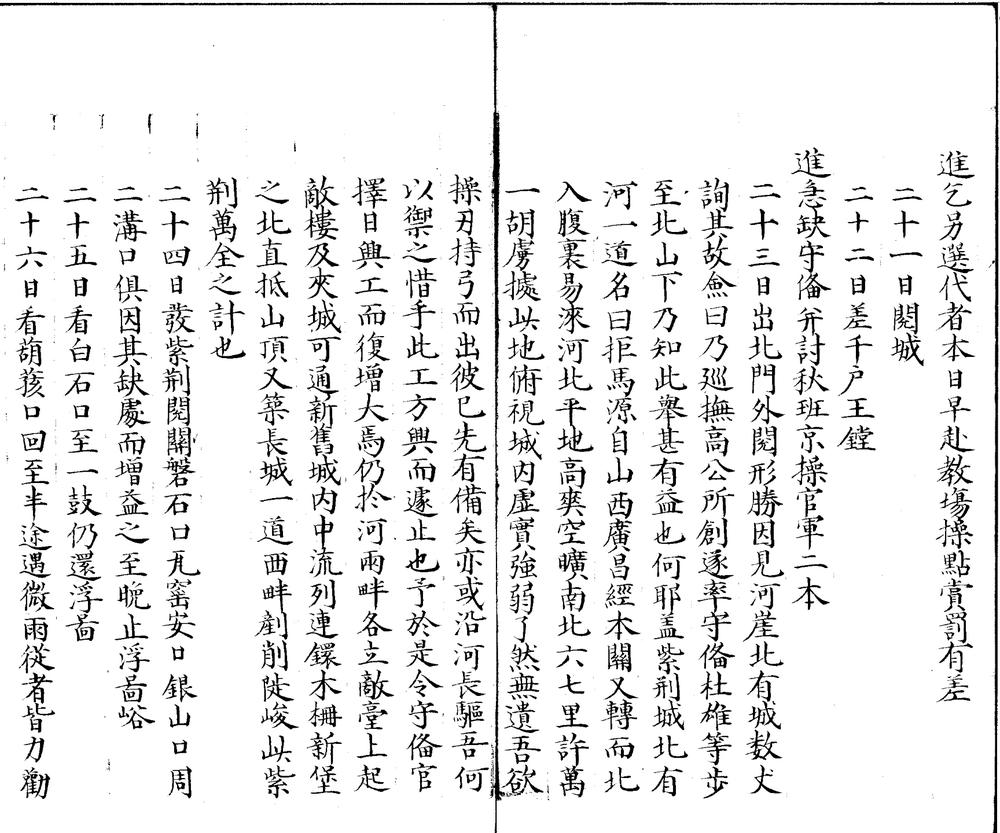 進乞另選代者本日早赴教塲操點賞罰有差
二十一日閱城
二十二日差千户王鏜
進急缺守俻并討秋班京操官軍二本
二十三日出北門外閱形勝因見河崖北有城数丈
詢其故僉曰乃廵撫高公所創遂率守俻杜雄等步
至北山下乃知此舉甚有益也何耶盖紫荆城北有
河一道名曰拒馬源自山西廣昌經本關又轉而北
入腹裏易淶河北平地高爽空曠南北六七里許萬
一胡虜據此地俯視城内虚實強弱了然無遺吾欲
操刃持弓而出彼已先有備矣亦或沿河長驅吾何
以禦之惜乎此工方興而遽止也予於是令守俻官
擇日興工而復增大焉仍扵河兩畔各立敵臺上起
敵樓及夾城可通新舊城内中流列連鐶木柵新堡
之北直抵山頂又築長城一道西畔剷削陡峻此紫
荆萬全之計也
二十四日發紫荆閱關磐石口瓦窑安口銀山口周
二溝口俱因其缺處而增益之至晚止浮啚峪
二十五日看白石口至一鼓仍還浮啚
二十六日看葫荄口回至半途遇微雨從者皆力勸